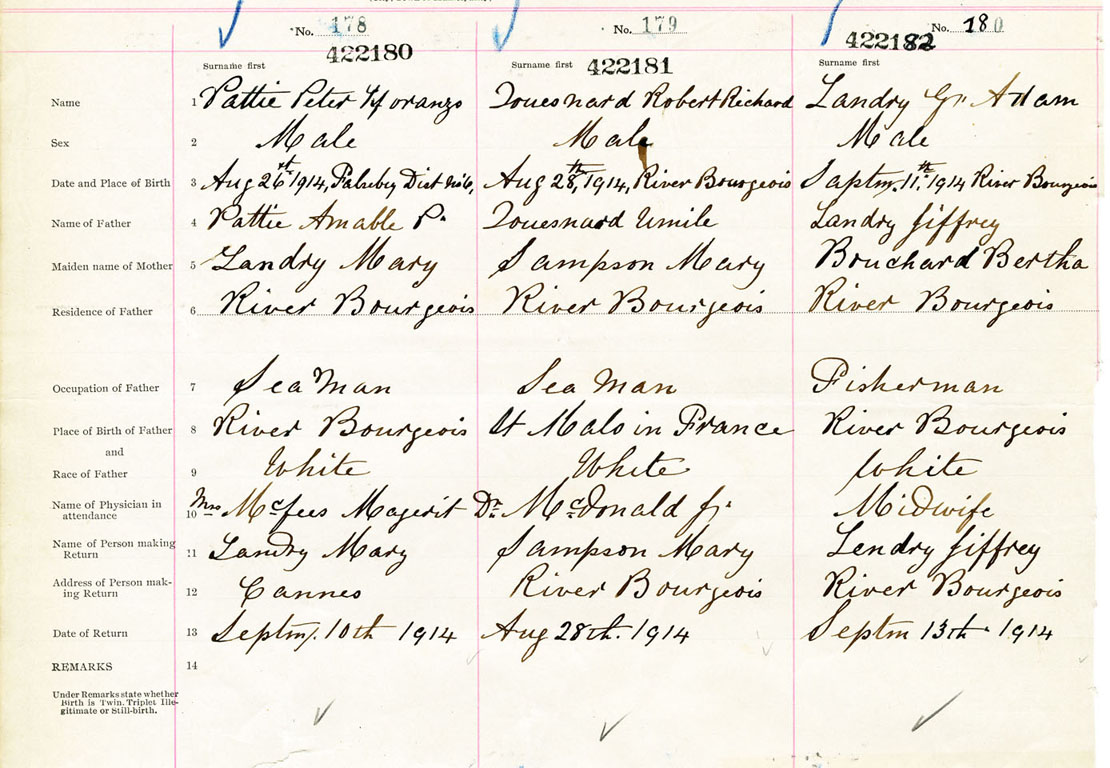 No. 178 No. 179 No. 180
422180 422181 422182
Surname first Surname first Surname first
Name 1 Pattie Peter Zouesnard Robert Richard Landry Adam
Sex 2 Male Male Male
Date and Place of Birth 3 Aug 26st 1914, Dist No 6, Aug 28th, 1914, River Bourgeois Saptm. 11th, 1914 River Bourgeois
Name of Father 4 Pattie Amable P. Zouesnard Umile Landry Jiffrey
Maiden name of Mother 5 Landry Mary Sampson Mary Bouchard Bertha
Residence of Father 6 River Bourgeois River Bourgeois River Bourgeois
Occupation of Father 7 Sea Man Sea Man Fisherman
Place of Birth of Father 8 River Bourgeois St Malo in France River Bourgeois
and
Race of Father 9 White White White
Name of Physician in Mrs McFees Magerit Dr. McDonald Jr. Midwife
attendance 10
Name of Person making Landry Mary Sampson Mary Lendry Jiffrey
Return 11
Address of Person mak- Cannes River Bourgeois River Bourgeois
ing Return 12
Date of Return 13 Septm. 10th 1914 Aug 28th. 1914 Septm 13th 1914
REMARKS 14
Under Remarks state whether
Birth is Twin, Triplet Ille-
gitimate or Still-birth.